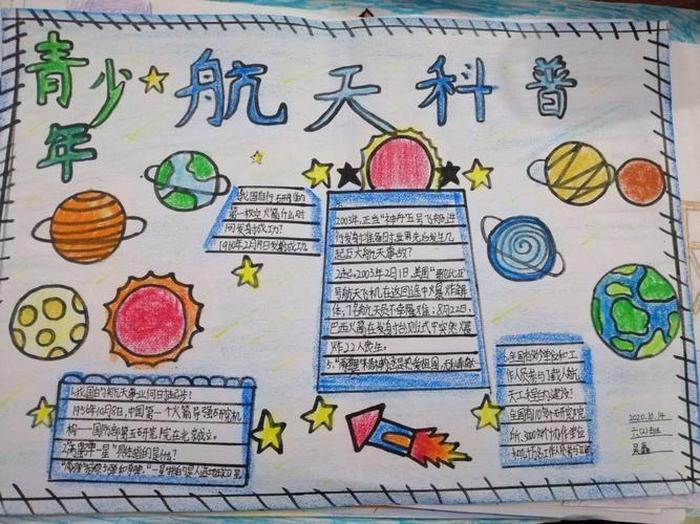 青少年
航天科普
我国自行研制的
第一枚空火箭什么时
间发射成功?
1960年2月19日发射成功
2003年,正当"神舟五号飞船进
行发射准备时,世界先后发生几
起与火航天事故?
2起。2003年2月1日,美国"哥伦比亚"
号航天飞机在返回途中爆炸解
体,7名航天员不幸罹难;8月22日,
巴西火箭在发射台测试中突然爆
炸,22人丧生。
1.我国的航天事业何日起步?
1956年10月8日,中国第一个火箭导弹研究机
构—国防部第五研究院在北京成立。
弹一星"具体指的是什么?
作人员参与了载人航
天工程的建设?
全国有110多个研究院
所、3000多个协作单位
2020.10.14